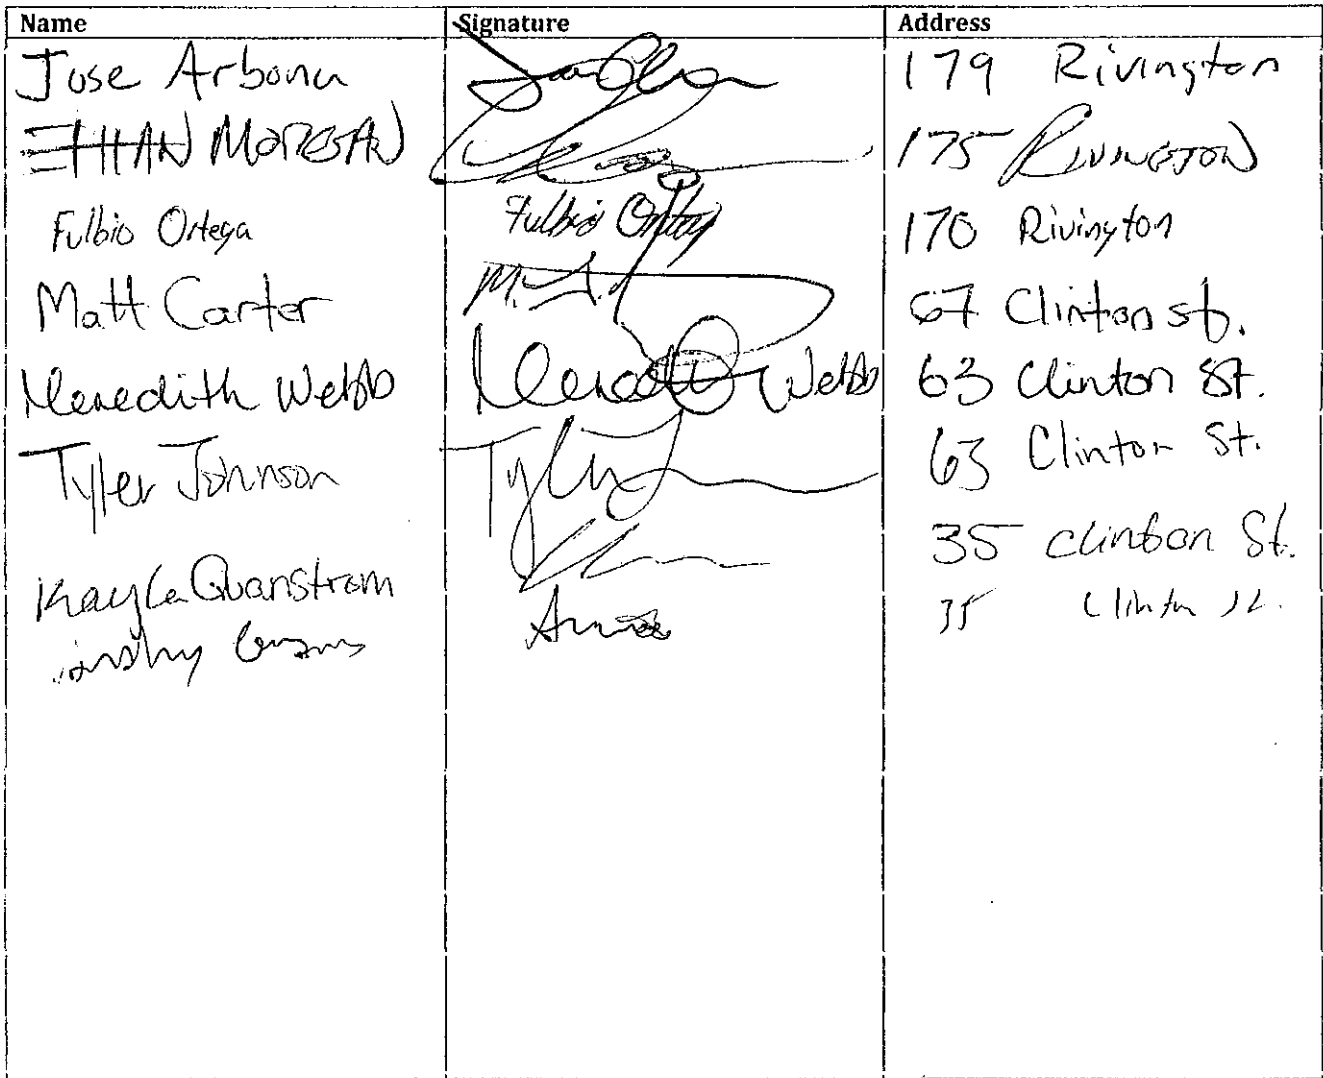 Name Signature Address
Jose Arbona 179 Rivington
ETHAN MORGAN 175 RIVINGTON
Fulbio Ortega Fulbio Ortega 170 Rivington
Matt Carter 67 Clinton st.
Meredith Webb Meredith Webb 63 Clinton St.
Tyler Johnson Tyler 63 Clinton St.
Kayla Quanstrom 35 Clinton St.
35 Clinton St.